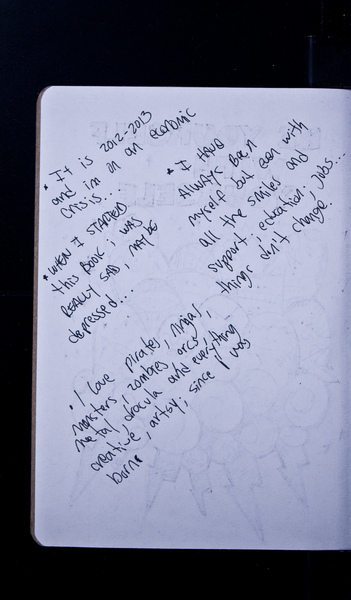 • It is 2012-2013
and im in an economic
crisis...
• WHEN I STARTED
this BOOK i WAS
REALLY SAD, MAYBE
depressed...
• I HAVE
AllWAYS BEEN
myself but even with
all the smiles and
support, education, jobs...
things don't change.
• I love pirates, ninjas,
monsters, zombies orcs
metal, dracula and everything
creative, artsy, since I was
born.